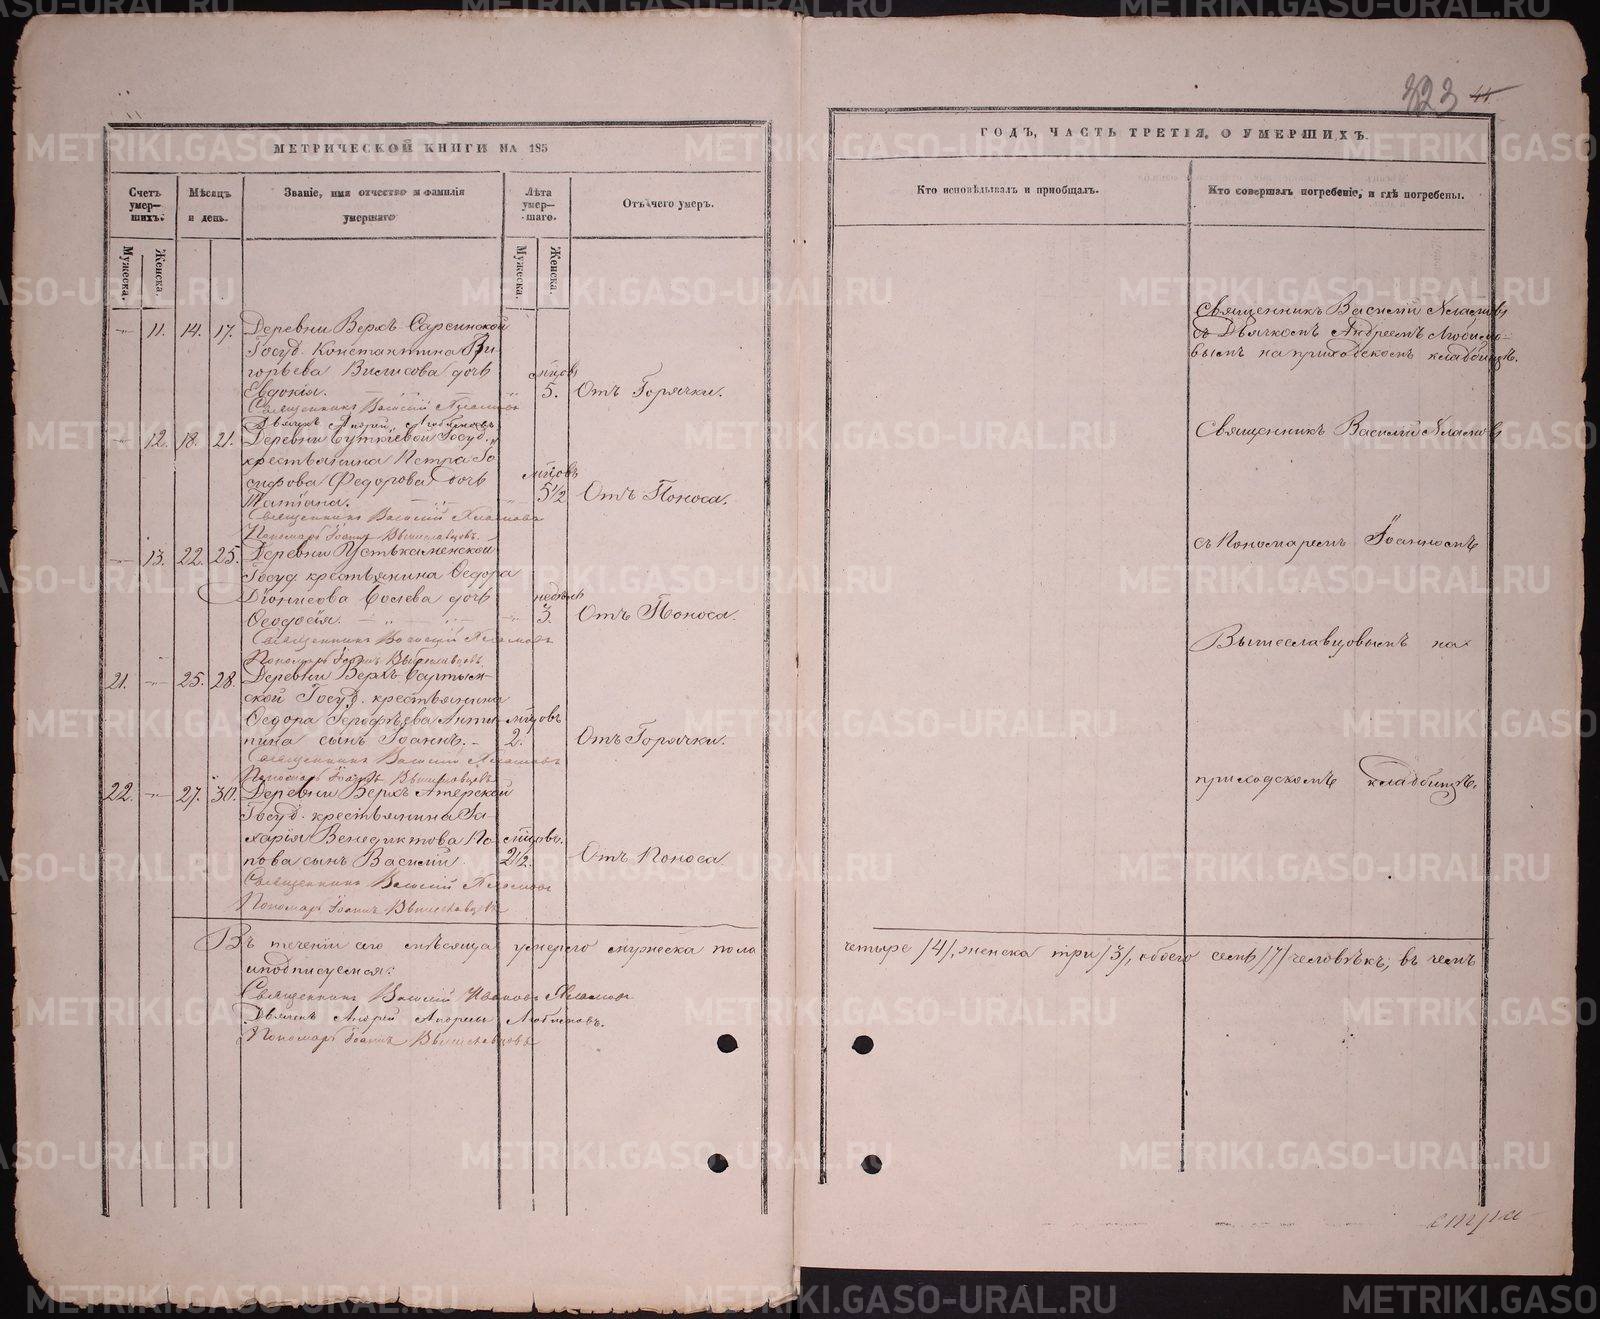 323 44
МЕТРИЧЕСКОЙ КНИГИ НА 185
ГОДЪ, ЧАСТЬ ТРЕТІЯ, О УМЕРШИХЪ.
Счетъ умер—шихъ.
Мѣсяцъ и день.
Званіе, имя отчество и фамилія умершаго
Лѣта умер—шаго.
Отъ чего умеръ.
Кто исповѣдывалъ и пріобщалъ.
Кто совершалъ погребеніе, и гдѣ погребены.
Мужеска.
Женска.
Мужеска.
Женска.
11. 14. 17. Деревни Верхъ Сарсинской
Госуд. Константина Гри-
горьева дочь мѣсцовъ
Евдокія. 5. Отъ Горячки.
Священникъ Василій
Дьячекъ Андрей Любимовъ
12. 18. 21. Деревни Госуд.
крестьянина Петра Іо
сифова Федорова дочь мѣсцовъ
Татіана. 5 1/2 Отъ Поноса.
Священникъ Василій
Пономарь Іоаннъ Вышеславцовъ.
13. 22. 25. Деревни Устькаменской
Госуд. крестьянина Ѳедора
Діонисова дочь недѣль
Ѳеодосія. 3. Отъ Поноса.
Священникъ Василій
Пономарь Іоаннъ Вышеславцовъ.
21. 25. 28. Деревни Верхъ
ской Госуд. крестьянина
Ѳедора Антипина мѣсцовъ
сынъ Іоаннъ. 2. Отъ Горячки.
Священникъ Василій
Пономарь Іоаннъ Вышеславцовъ
22. 27. 30. Деревни Верхъ Атерской
Госуд. крестьянина За-
харія Венедиктова По мѣсцовъ.
пова сынъ Василій 2 1/2. Отъ Поноса
Священникъ Василій
Пономарь Іоаннъ Вышеславцовъ
Священникъ Василій
съ Дьячкомъ Андреемъ Любимо-
вымъ на приходскомъ кладбищѣ.
Священникъ Василій
съ Пономаремъ Іоанномъ
Вышеславцовымъ на
приходскомъ кладбищѣ.
Въ теченіи сего мѣсяца умерло мужеска пола четыре /4/, женска три /3/, обоего семь /7/ человѣкъ; въ чемъ
и подписуемся:
Священникъ Василій Ивановъ
Дьячекъ Андрей Андреевъ Любимовъ.
Пономарь Іоаннъ Вышеславцовъ
METRIKI.GASO-URAL.RU